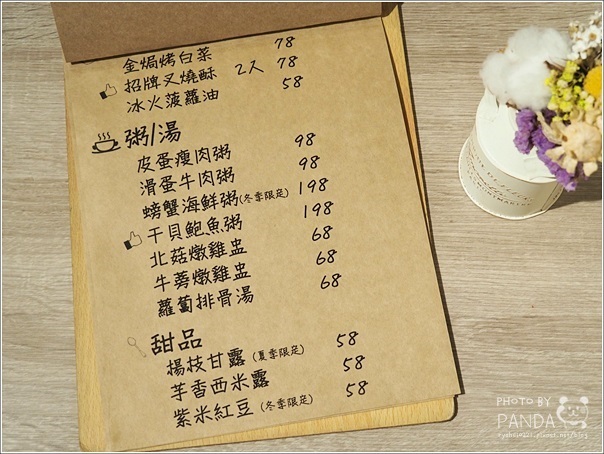 金焗烤白菜 78
招牌叉燒酥 2入 78
冰火菠蘿油 58
粥/湯
皮蛋瘦肉粥 98
滑蛋牛肉粥 98
螃蟹海鮮粥(冬季限定) 198
干貝鮑魚粥 198
北菇燉雞盅 68
牛蒡燉雞盅 68
蘿蔔排骨湯 68
甜品
楊枝甘露(夏季限定) 58
芋香西米露 58
紫米紅豆(冬季限定) 58
PHOTO BY
PANDA